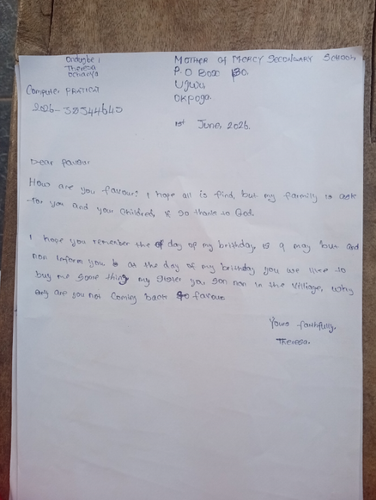 Ondugbe :
Theresa
MOTHER OF MERCY SECONDARY SCHOOL
P. O BOX 130,
UJWU
OKPOGA
COMPUTER PRACTICE
1st June, 2026.
Dear favour
How are you favour: I hope all is find, but my farmily is ask
for you and your children & so thank to God.
I hope you remember the of day of my birthday is 9 may but did
non inform you b at the day of my birthday you we like to
buy me some thing my sister you son non in the village, why
are you not coming back to favour
Yours faithfully,
Theresa.